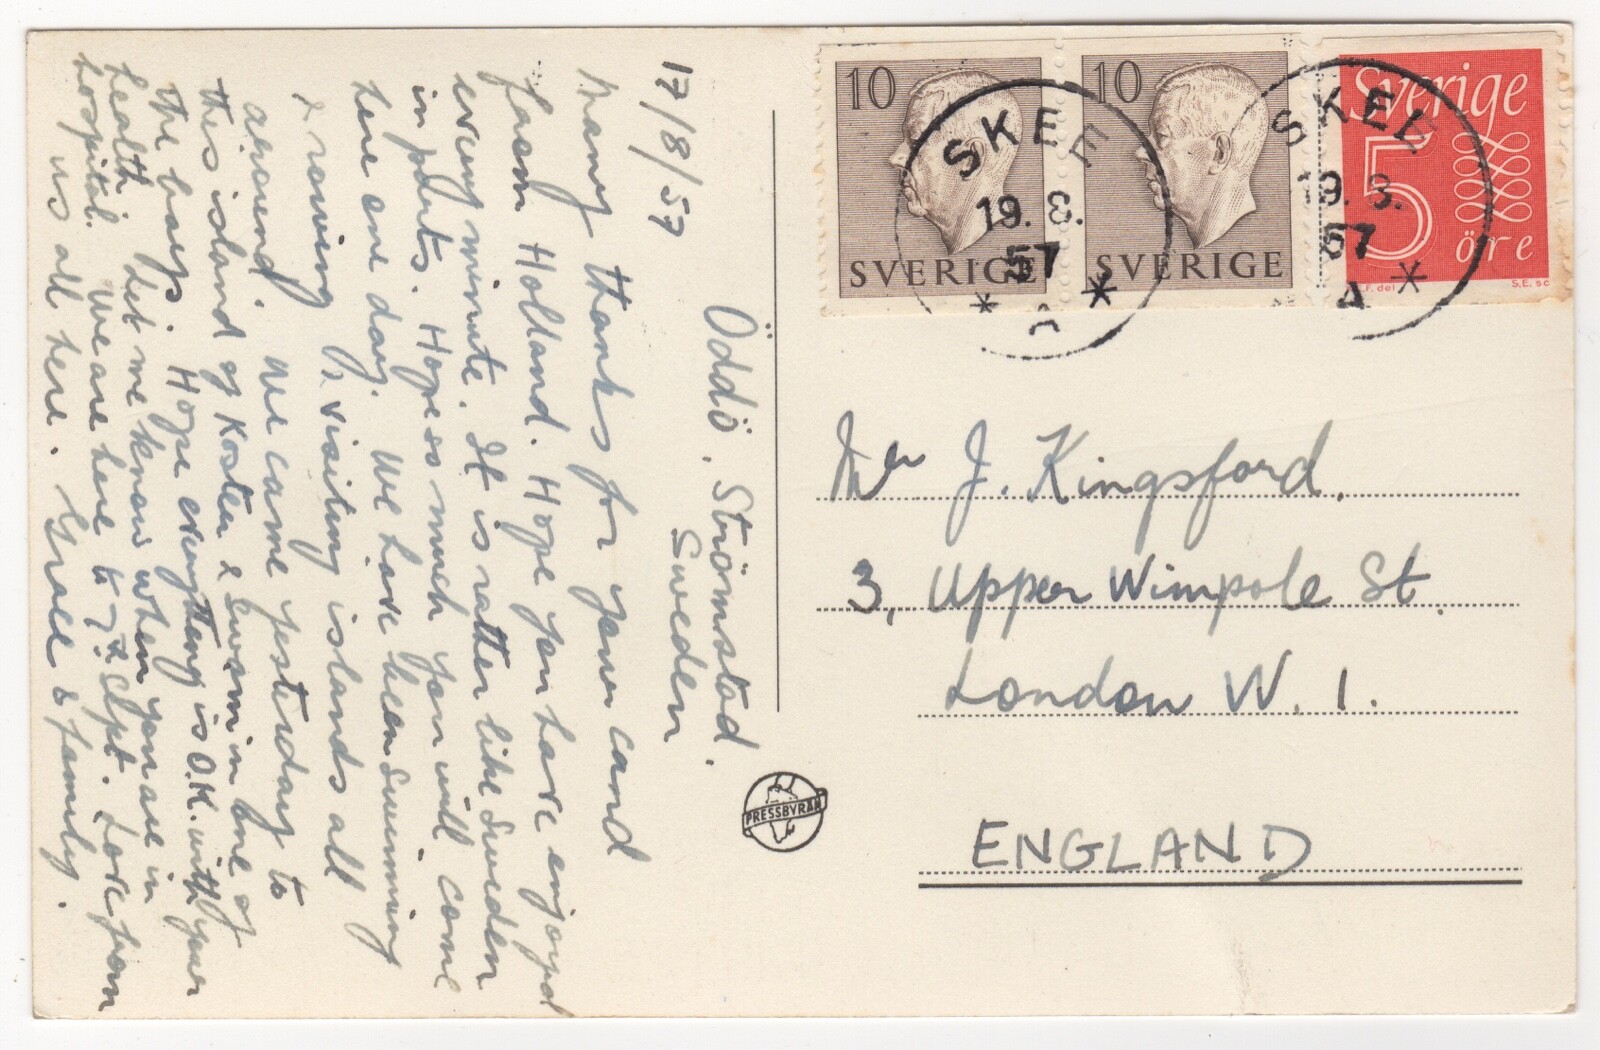 17/8/57
Öddö, Strömstad.
Sweden
Many thanks for your card
from Holland. Hope you have enjoyed
every minute. It is rather like Sweden
in parts. Hope so much you will come
here one day. We have been swimming
& rowing & visiting islands all
around. We came yesterday to
this island of Koster & swam in one of
the bays. Hope everything is O.K. with your
health. Let me know when you are in
hospital. We are here til 7th Sept. Love from
us all here. Grace & family.
10
SVERIGE
10
SVERIGE
Sverige
5
öre
S.E. sc
SKEE
19. 8.
57
SKEE
19. 8.
57
A
Mr J. Kingsford,
3, Upper Wimpole St.
London W. 1.
ENGLAND
PRESSBYRÅN